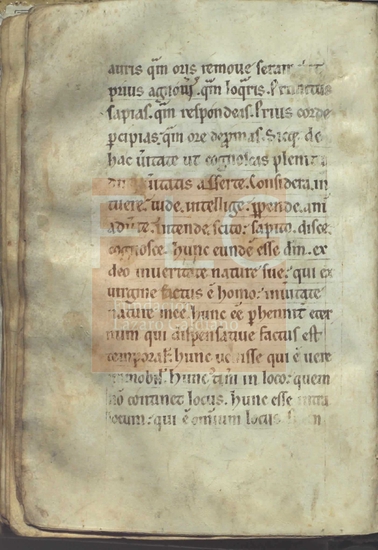 auris qm oris remove seram
prius agnoui. qm loqris. Prius
sapias. qm respondeas. Prius corde
pcipias. qm ore depmas. Sicq; de
hac uitate ut cognoscas
uitatis asserte. Considera. in
tuere. uide. intellige. ppende. ani
adute. intende. scito. sapito. disce.
cognosce. hunc eunde esse dm. ex
deo in ueritate nature sue. qui ex
uirgine factus e homo. in uitate
nature mee. hunc ee phennit eter
num qui dispensatiue factus est
temporal. hunc qui e uere
hunc in loco. quem
no continet locus. hunc esse
locum. qui e omnium locus.